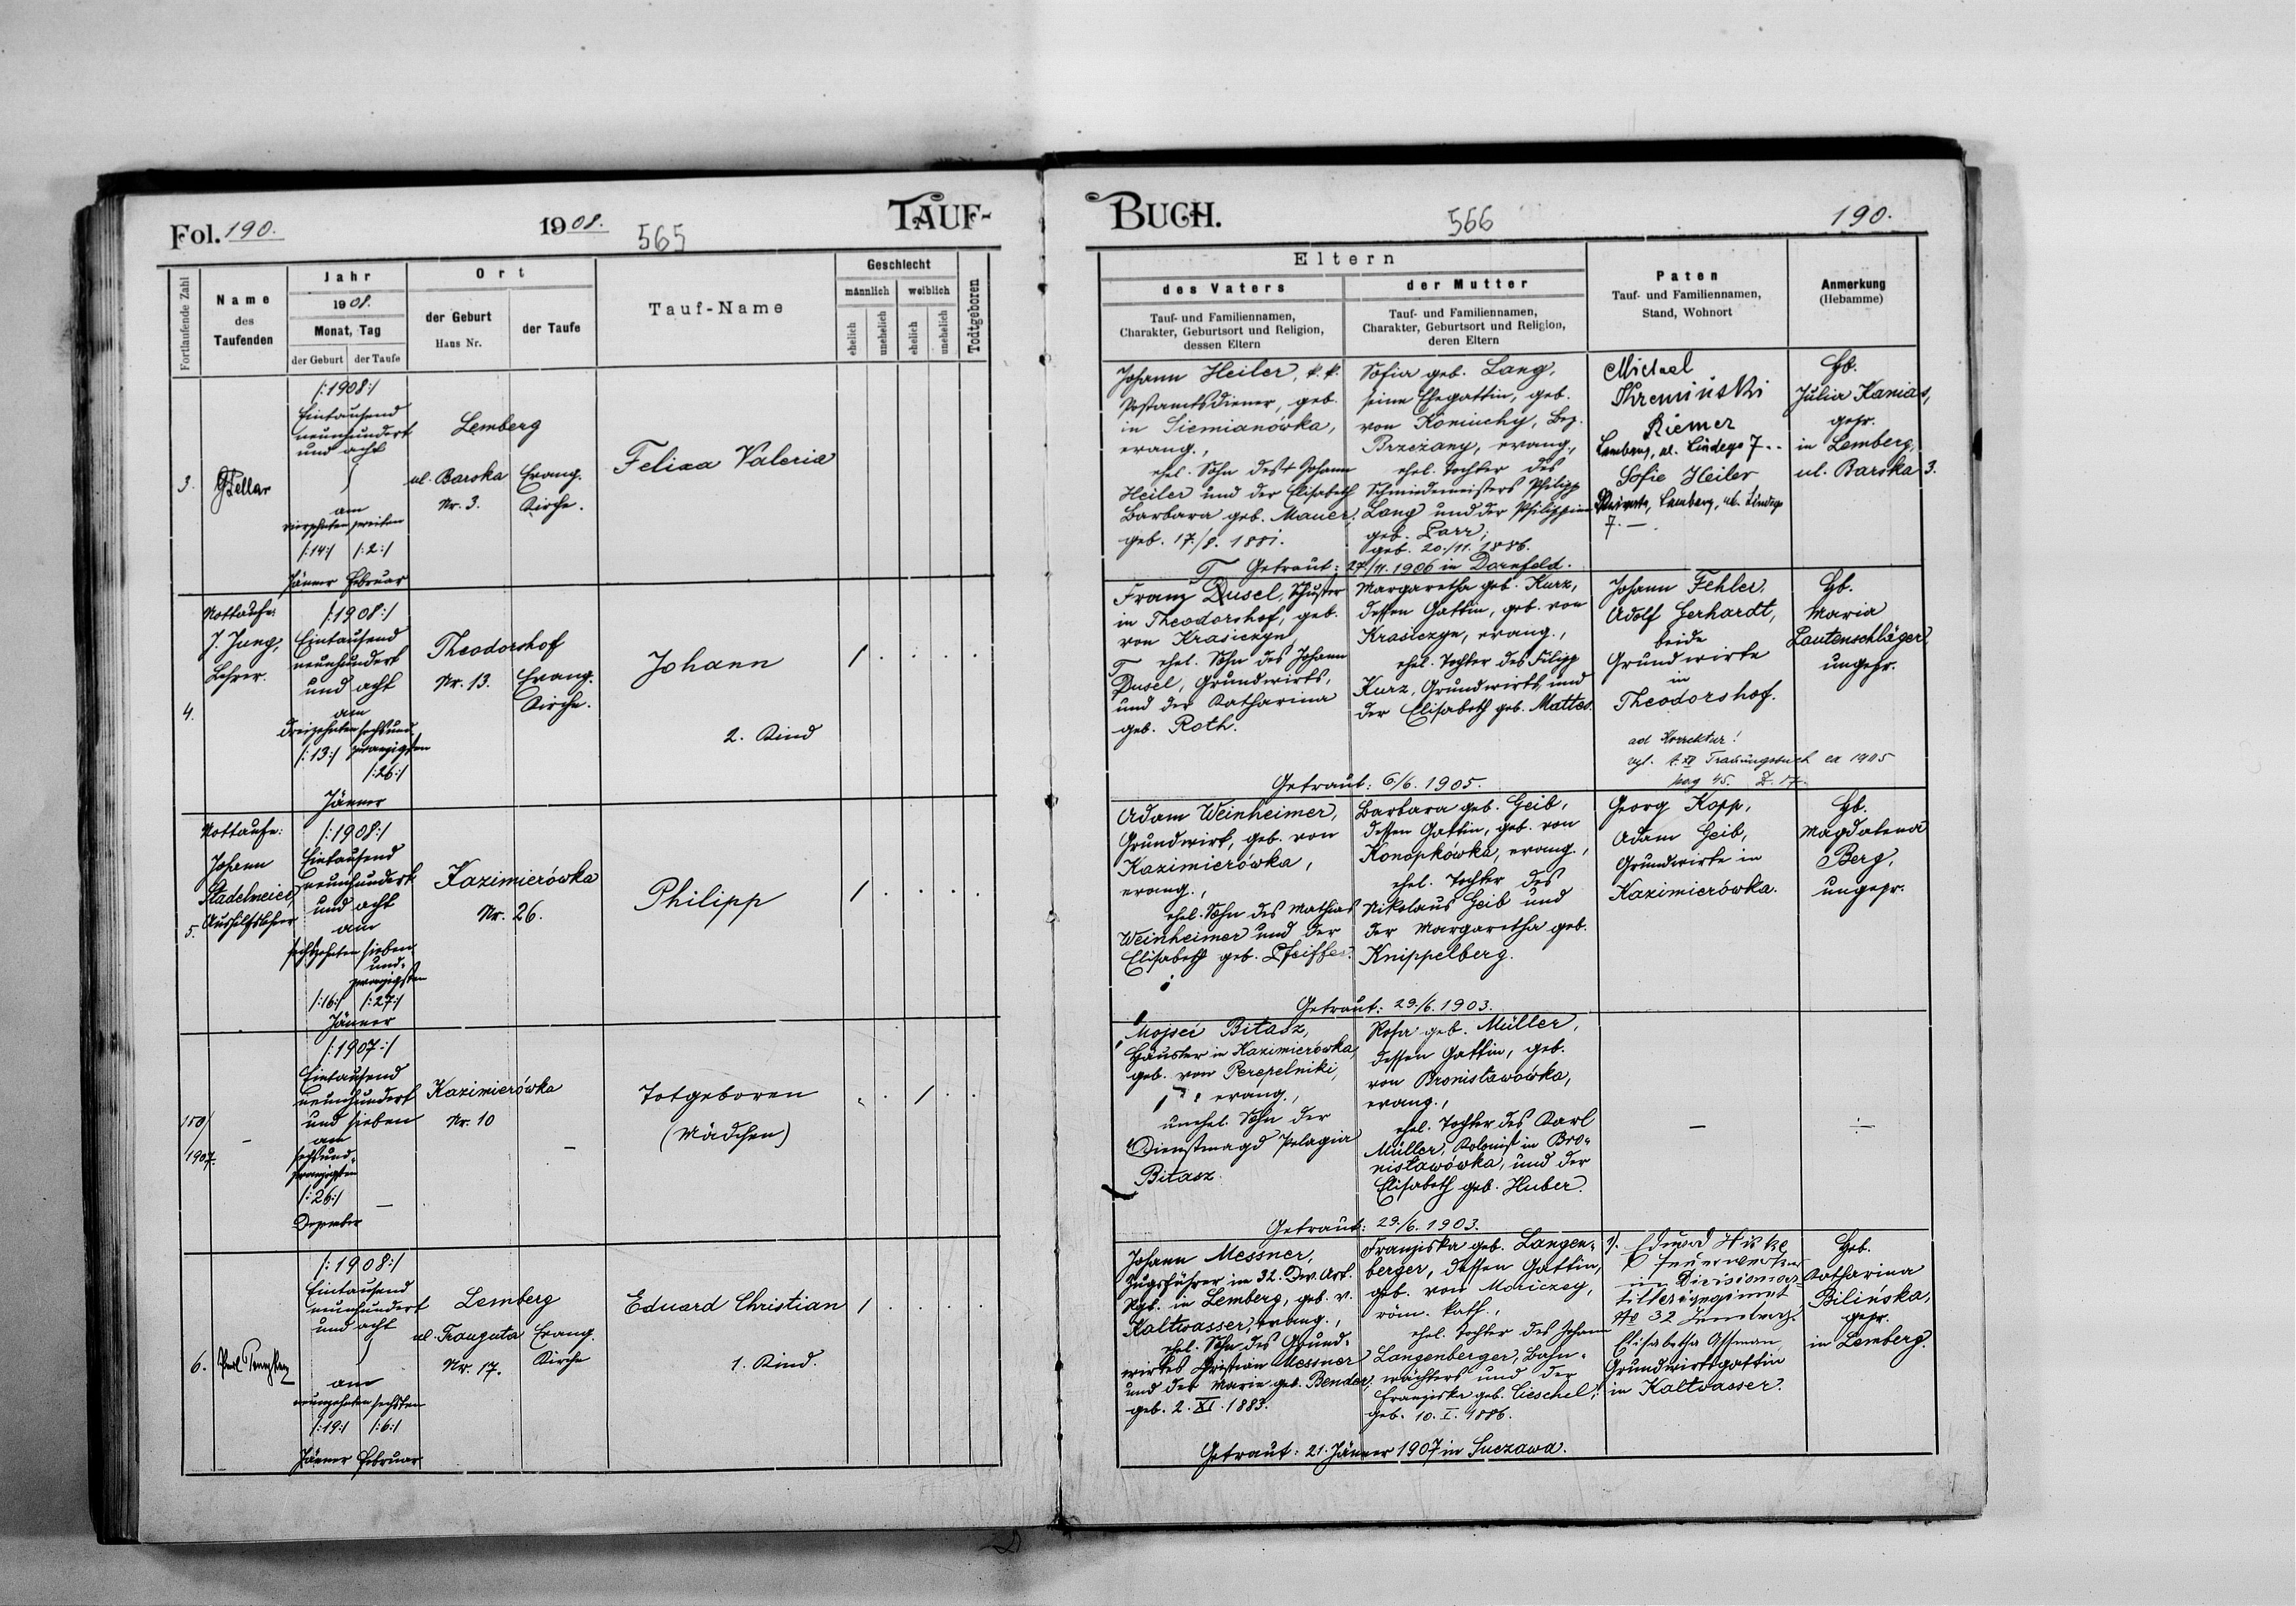 Fol. 190.
1908.
565
TAUF-
Fortlaufende Zahl
Name
des
Taufenden
Jahr
1908.
Monat, Tag
der Geburt
der Taufe
Ort
der Geburt
Haus Nr.
der Taufe
Tauf-Name
Geschlecht
männlich
weiblich
ehelich
unehelich
ehelich
unehelich
Todtgeboren
3.
/:1908:/
Eintausend
neunhundert
und acht
am
vierzehnten zweiten
/:14:/ /:2:/
Jänner Februar
Lemberg
ul. Barska
Nr. 3.
Evang.
Kirche.
Felixa Valeria
4.
Nottaufe:
J. Jung,
Lehrer.
/:1908:/
Eintausend
neunhundert
und acht
am
dreizehnten sechsund-
/:13:/ zwanzigsten
/:26:/
Jänner
Theodorshof
Nr. 13.
Evang.
Kirche.
Johann
2. Kind
5.
Nottaufe:
Johann
Stadelmeier,
Aushilfslehrer
/:1908:/
Eintausend
neunhundert
und acht
am
sechzehnten sieben-
und-
zwanzigsten
/:16:/ /:27:/
Jänner
Kazimierówka
Nr. 26.
Philipp
150/
1907.
/:1907:/
Eintausend
neunhundert
und sieben
am
sechsund-
zwanzigsten
/:26:/
Dezember
Kazimierówka
Nr. 10
Totgeboren
(Mädchen)
6.
/:1908:/
Eintausend
neunhundert
und acht
am
neunzehnten sechsten
/:19:/ /:6:/
Jänner Februar
Lemberg
ul. Trauguta
Nr. 17.
Evang.
Kirche
Eduard Christian
1. Kind.
BUCH.
566
190.
Eltern
des Vaters
Tauf- und Familiennamen,
Charakter, Geburtsort und Religion,
dessen Eltern
der Mutter
Tauf- und Familiennamen,
Charakter, Geburtsort und Religion,
deren Eltern
Paten
Tauf- und Familiennamen,
Stand, Wohnort
Anmerkung
(Hebamme)
Johann Heiler, k. k.
Postamtsdiener, geb.
in Siemianówka,
evang.,
ehel. Sohn des + Johann
Heiler und der Elisabeth
Barbara geb. Mauer,
geb. 17./8. 1881.
Sofia geb. Lang,
seine Ehegattin, geb.
von Koniuchy, Bez.
Brzeżany, evang.,
ehel. Tochter des
Schmiedemeisters Philipp
Lang und der Philippine
geb. Parr;
geb. 20./11. 1886.
Getraut: 27./11. 1906 in Dornfeld.
Michael
Riemer
Lemberg, ul. Lindego 7
Sofie Heiler
Private, Lemberg, ul. Lindego
7.
Hb.
Julia Kanias,
gepr.
in Lemberg,
ul. Barska 3.
Franz Dusel, Schuster
in Theodorshof, geb.
von Krasiczyn,
ehel. Sohn des Johann
Dusel, Grundwirts,
und der Katharina
geb. Roth.
Margaretha geb. Kurz,
dessen Gattin, geb. von
Krasiczyn, evang.,
ehel. Tochter des Filipp
Kurz, Grundwirts und
der Elisabeth geb. Mattes.
Getraut: 6./6. 1905.
Johann Fehler,
Adolf Gerhardt,
beide
Grundwirte
in
Theodorshof.
ad Korrektur!
vgl. t. XI Trauungsbuch ex 1905
pag 45. Z. 17.
Hb.
Maria
Lautenschläger
ungepr.
Adam Weinheimer,
Grundwirt, geb. von
Kazimierówka,
evang.,
ehel. Sohn des Mathias
Weinheimer und der
Elisabeth geb. Pfeiffer.
Barbara geb. Geib,
dessen Gattin, geb. von
Konopkówka, evang.,
ehel. Tochter des
Nikolaus Geib und
der Margaretha geb.
Knippelberg.
Getraut: 29./6. 1903.
Georg Kopp,
Adam Geib,
Grundwirte in
Kazimierówka.
Hb.
Magdalena
Berg,
ungepr.
Mojsei Bitasz,
Häusler in Kazimierówka,
geb. von Perepelniki,
evang.,
unehel. Sohn der
Dienstmagd Pelagia
Bitasz.
Rosa geb. Müller,
dessen Gattin, geb.
von Bronisławówka,
evang.,
ehel. Tochter des Karl
Müller, Kolonist in Bro-
nisławówka, und der
Elisabeth geb. Huber.
Getraut: 29./6. 1903.
Johann Messner,
Zugsführer im 32. Div. Art.
Rgt. in Lemberg, geb. v.
Kaltwasser, evang.,
ehel. Sohn des Grund-
wirtes Christian Messner
und der Marie geb. Bender,
geb. 2. XI. 1883.
Franziska geb. Langen-
berger, dessen Gattin,
geb. von Moriczey,
röm. kath.,
ehel. Tochter des Johann
Langenberger, Bahn-
wächters und der
Franziska geb. Cieschel,
geb. 10. I. 1886.
Getraut: 21. Jänner 1907 in Suczawa.
Nr 32 Lemberg.
Elisabetha Assman,
Grundwirtsgattin
in Kaltwasser.
Heb.
Katharina
Bilińska,
gepr.
in Lemberg.